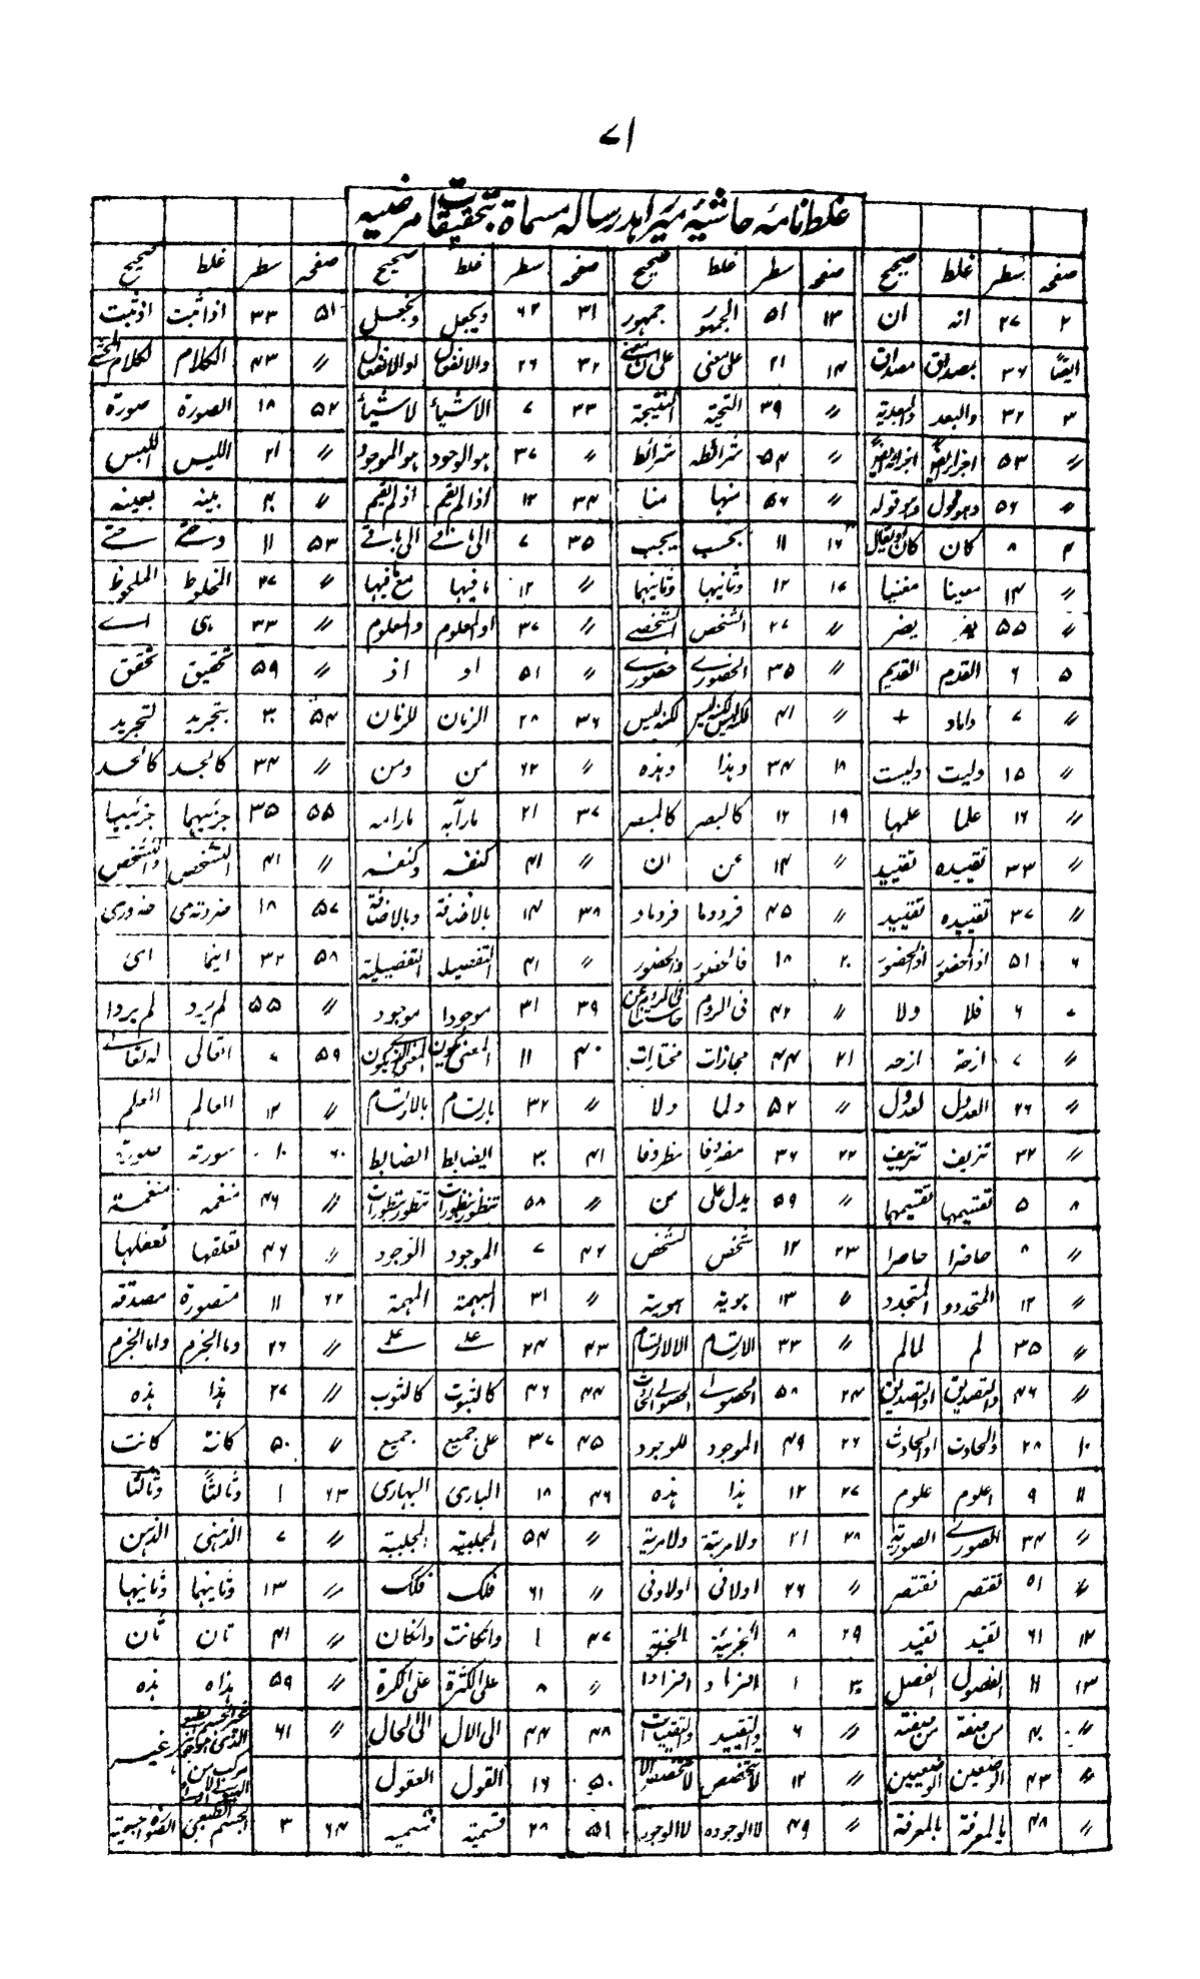 ۷۱
غلط نامہ حاشیہ میر زاہد رسالہ مسماۃ بتحقیقات مرضیہ
صفحہ سطر غلط صحیح صفحہ سطر غلط صحیح صفحہ سطر غلط صحیح صفحہ سطر غلط صحیح
۲ ۲۷ انہ ان ۱۳ ۵۱ الجمہور جمہور ۳۱ ۶۲ ویجعل ونجعل ۵۱ ۳۳ اذا اثبت اذثبت
ایضاً ۳۶ بصداق مصداق ۱۴ ۲۱ علی معنی ۳۲ ۲۶ والانفعال اوالانفعال 〃 ۴۳ الکلام
۳ ۳۲ والبعد والبعدیۃ 〃 ۳۹ النتیجۃ ۳۳ ۷ الاشیاء لاشیاء ۵۲ ۱۸ الصورۃ صورۃ
〃 ۵۳ 〃 ۵۴ شرائطہ شرائط 〃 ۳۷ ہوالوجود ہوالموجود 〃 ۲۱ اللیس اللبس
〃 ۵۶ وہو قول وہو قولہ 〃 ۵۶ منہا منا ۳۴ ۱۲ اذا لم یقم اذ لم یقم 〃 ۴۰ بینہ بعینہ
۴ ۸ کان ۱۶ ۱۱ بحسب یجب ۳۵ ۷ ۵۳ ۱۱ وحتے حتے
〃 ۱۴ معینا مغنیا ۱۷ ۱۲ وثانیہا وثانیہما 〃 ۱۲ مافیہا مع مافیہا 〃 ۲۷ المخلوط الملحوظ
〃 ۵۵ یضر 〃 ۲۷ الشخص الشخصے 〃 ۳۷ اوالعلوم والمعلوم 〃 ۳۳ ہی اے
۵ ۶ القدم القدیم 〃 ۳۵ الحضورے حضورے 〃 ۵۱ او اذ 〃 ۵۹ تحقیق تحقق
〃 ۷ داماد + 〃 ۴۱ لکنہ لیس ۳۶ ۲۸ الزمان للزمان ۵۴ ۳۰ بتجرید لتجرید
〃 ۱۵ ولیت ولیست ۱۸ ۳۴ وہذا وہذہ 〃 ۶۲ من ومن 〃 ۳۴ کالجد کالحد
〃 ۱۶ علما علمہا ۱۹ ۱۲ کالبصر کالمبصر ۳۷ ۲۱ مارآہ مارامہ ۵۵ ۳۵ جزئیہما جزئیہا
〃 ۳۳ تقییدہ تقیید 〃 ۱۴ عن ان 〃 ۴۱ کنفہ وکنفہ 〃 ۴۱ الشخص والشخص
〃 ۳۷ تقییدہ تقیید 〃 ۴۵ فردوما فرد ماد ۳۸ ۱۴ بالاضافۃ وبالاضافۃ ۵۷ ۱۸ ضروری
۶ ۵۱ ۲۰ ۱۸ فالحضور والحضور 〃 ۴۱ التفصیلہ التفصیلیۃ ۵۸ ۳۲ اینما ای
۷ ۶ فلا ولا 〃 ۴۲ فی الروم ۳۹ ۳۱ موجودا موجود 〃 ۵۵ لم یرد لم یردا
〃 ۷ ازحۃ ازحہ ۲۱ ۴۴ مجازات مختارات ۴۰ ۱۱ ۵۹ ۷ اتعالی
〃 ۲۶ العدول لعدول 〃 ۵۲ ولما ولا 〃 ۳۲ بارتسام بالارتسام 〃 ۱۲ العالم العلم
〃 ۳۲ تزیف ۲۲ ۳۶ مفروفا مظروفا ۴۱ ۳۰ الیضابط الضابط ۶۰ ۱۰ سورتہ صورۃ
۸ ۵ تقسیمہا تقسیمہما 〃 ۵۹ یدل علی من 〃 ۵۸ 〃 ۴۶ منغمہ منغمسۃ
〃 ۸ حاضرا حاصرا ۲۳ ۱۲ شخص لشخص ۴۲ ۷ الموجود الوجود 〃 ۴۶ تعلقہا تعقلہا
〃 ۱۲ المتجددو المتجدد 〃 ۱۳ ہویۃ 〃 ۳۱ البہمۃ المہمۃ ۶۲ ۱۱ متصورۃ مصدقۃ
〃 ۳۵ لم لمالم 〃 ۳۳ الارتسام الالارتسام ۴۳ ۲۴ 〃 ۲۶ وما الجزم واما الجزم
〃 ۴۶ والتصدیق اوالتصدیق ۲۴ ۵۸ ۴۴ ۴۶ کالثبوت کالثوب 〃 ۲۷ ہذا ہذہ
۱۰ ۲۸ والحادث اوالحادث ۲۶ ۴۹ الموجود للوجود ۴۵ ۳۷ علی جمیع جمیع 〃 ۵۰ کانۃ کانت
۱۱ ۹ اعلوم علوم ۲۷ ۱۲ ہذا ہذہ ۴۶ ۱۸ الباری البہاری ۶۳ ۱ وثالثاً وثالثا
〃 ۳۴ الصورے الصوریۃ ۲۸ ۲۱ ولامریتۃ ولامریۃ 〃 ۵۴ 〃 ۷ الذہنی الذہن
〃 ۵۱ تقتصر نقتصر 〃 ۲۶ اولافی اولاوفی 〃 ۶۱ فلک فکک 〃 ۱۳ وثانیہما وثانیہا
۱۲ ۶۱ تقید تفید ۲۹ ۸ ۴۷ ۱ وانکانت وانکان 〃 ۴۱ تان ثان
۱۳ ۱۱ الفصول الفصل ۳۰ ۱ افراد افرادا 〃 ۸ علی الکثرۃ علی الکرۃ 〃 ۵۹ ہذاہ ہذہ
〃 ۴۰ 〃 ۶ والتقیید والتقییدات ۴۸ ۴۴ الی الال الی الحال 〃 ۶۱ غیر
〃 ۴۳ الوضعین الوضعیین 〃 ۱۲ لاتخصص ۵۰ ۱۶ القول العقول
〃 ۴۸ یالمعرفۃ بالمعرفۃ 〃 ۴۹ لاالوجودہ لاالوجود ۵۱ ۲۸ قسمیۃ تسمیہ ۶۴ ۳ الجسم الطبیعی الصورۃ الجسمیۃ